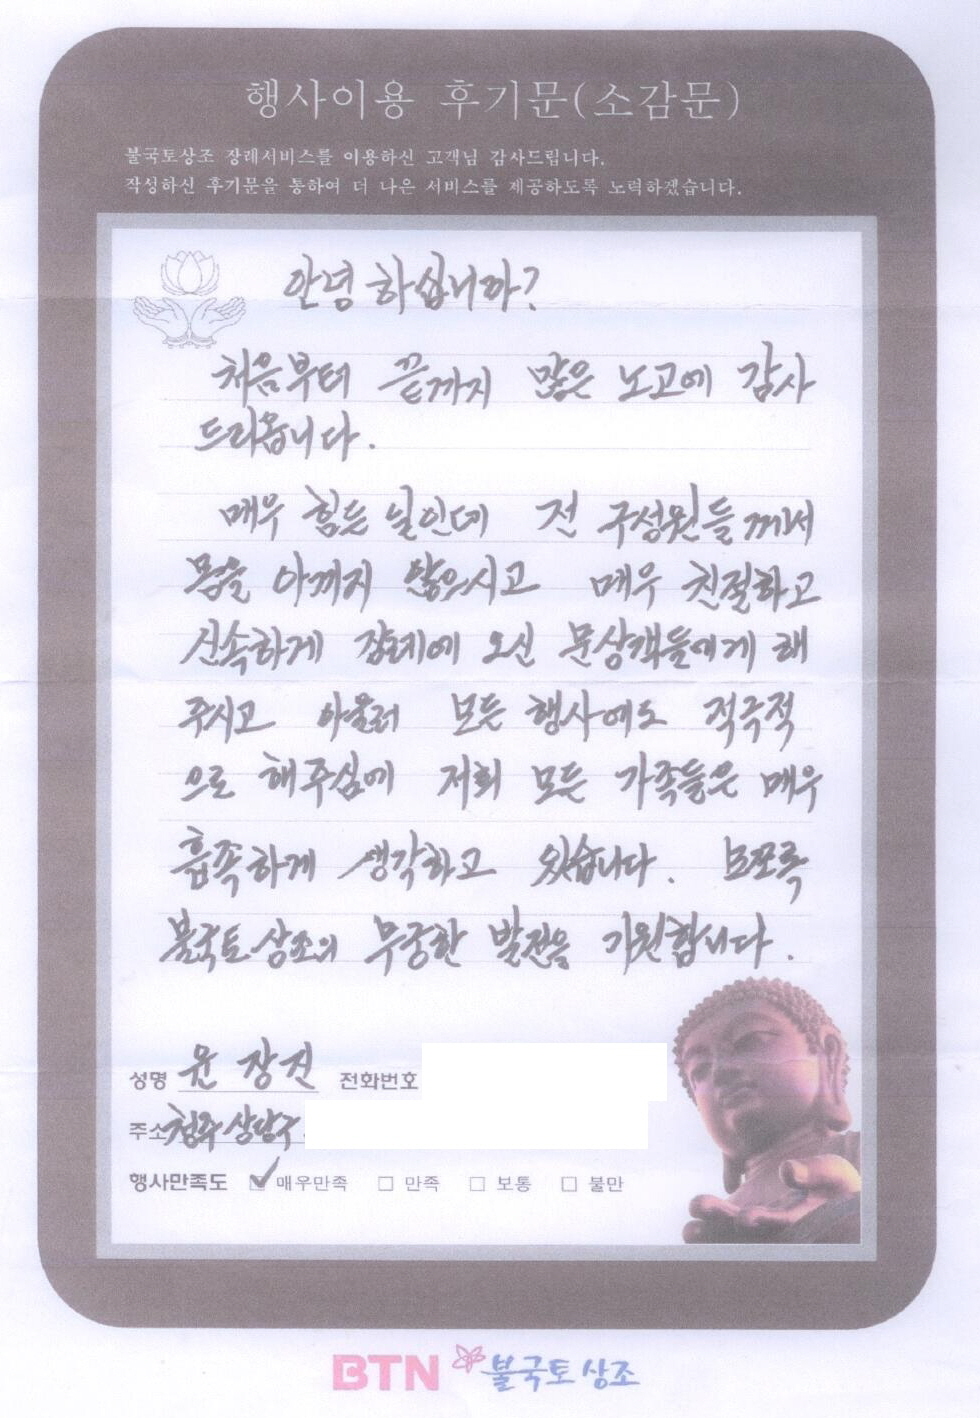 행사이용 후기문(소감문)
불국토상조 장례서비스를 이용하신 고객님 감사드립니다.
작성하신 후기문을 통하여 더 나은 서비스를 제공하도록 노력하겠습니다.
안녕 하십니까?
처음부터 끝까지 많은 노고에 감사
드리옵니다.
매우 힘든 일인데 전 구성원들께서
몸을 아끼지 않으시고 매우 친절하고
신속하게 장례에 오신 문상객들에게 해
주시고 아울러 모든 행사에도 적극적
으로 해주심에 저희 모든 가족들은 매우
흡족하게 생각하고 있습니다. 모쪼록
불국토상조의 무궁한 발전을 기원합니다.
성명 윤장진 전화번호
주소 청주 상당구
행사만족도 매우만족 만족 보통 불만
BTN 불국토상조